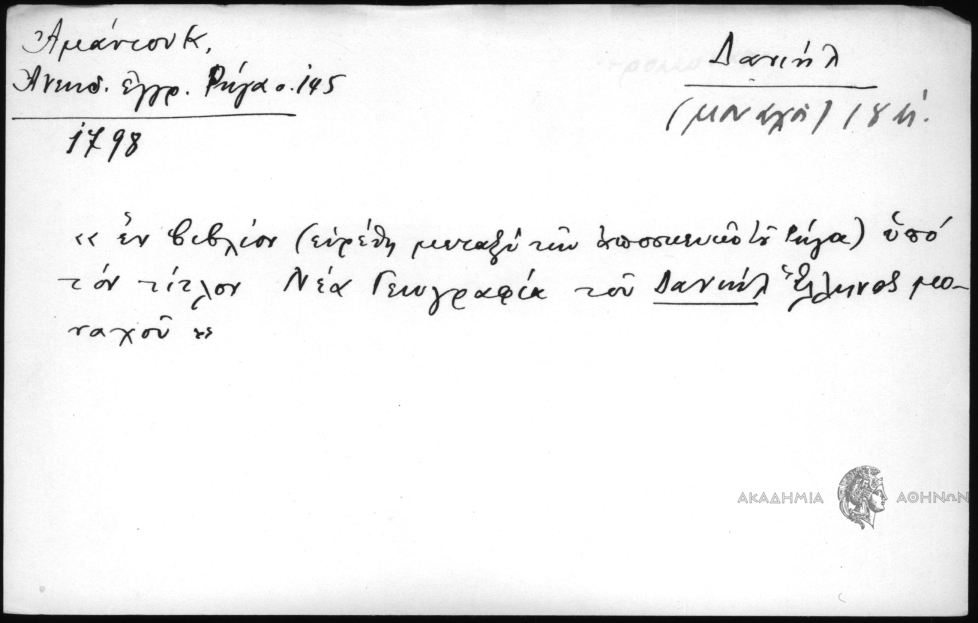 Ἀμάντου Κ,
Ἀνεκδ. ἔγγρ. Ρήγα σ. 145
1798
Δανιήλ
(μοναχός) 18 αἰ.
«ἕν βιβλίον (εὑρέθη μεταξύ τῶν ἀποσκευῶν τοῦ Ρήγα) ὑπό
τόν τίτλον Νέα Γεωγραφία τοῦ Δανιήλ Ἕλληνος μο-
ναχοῦ»
ΑΚΑΔΗΜΙΑ ΑΘΗΝΩΝ